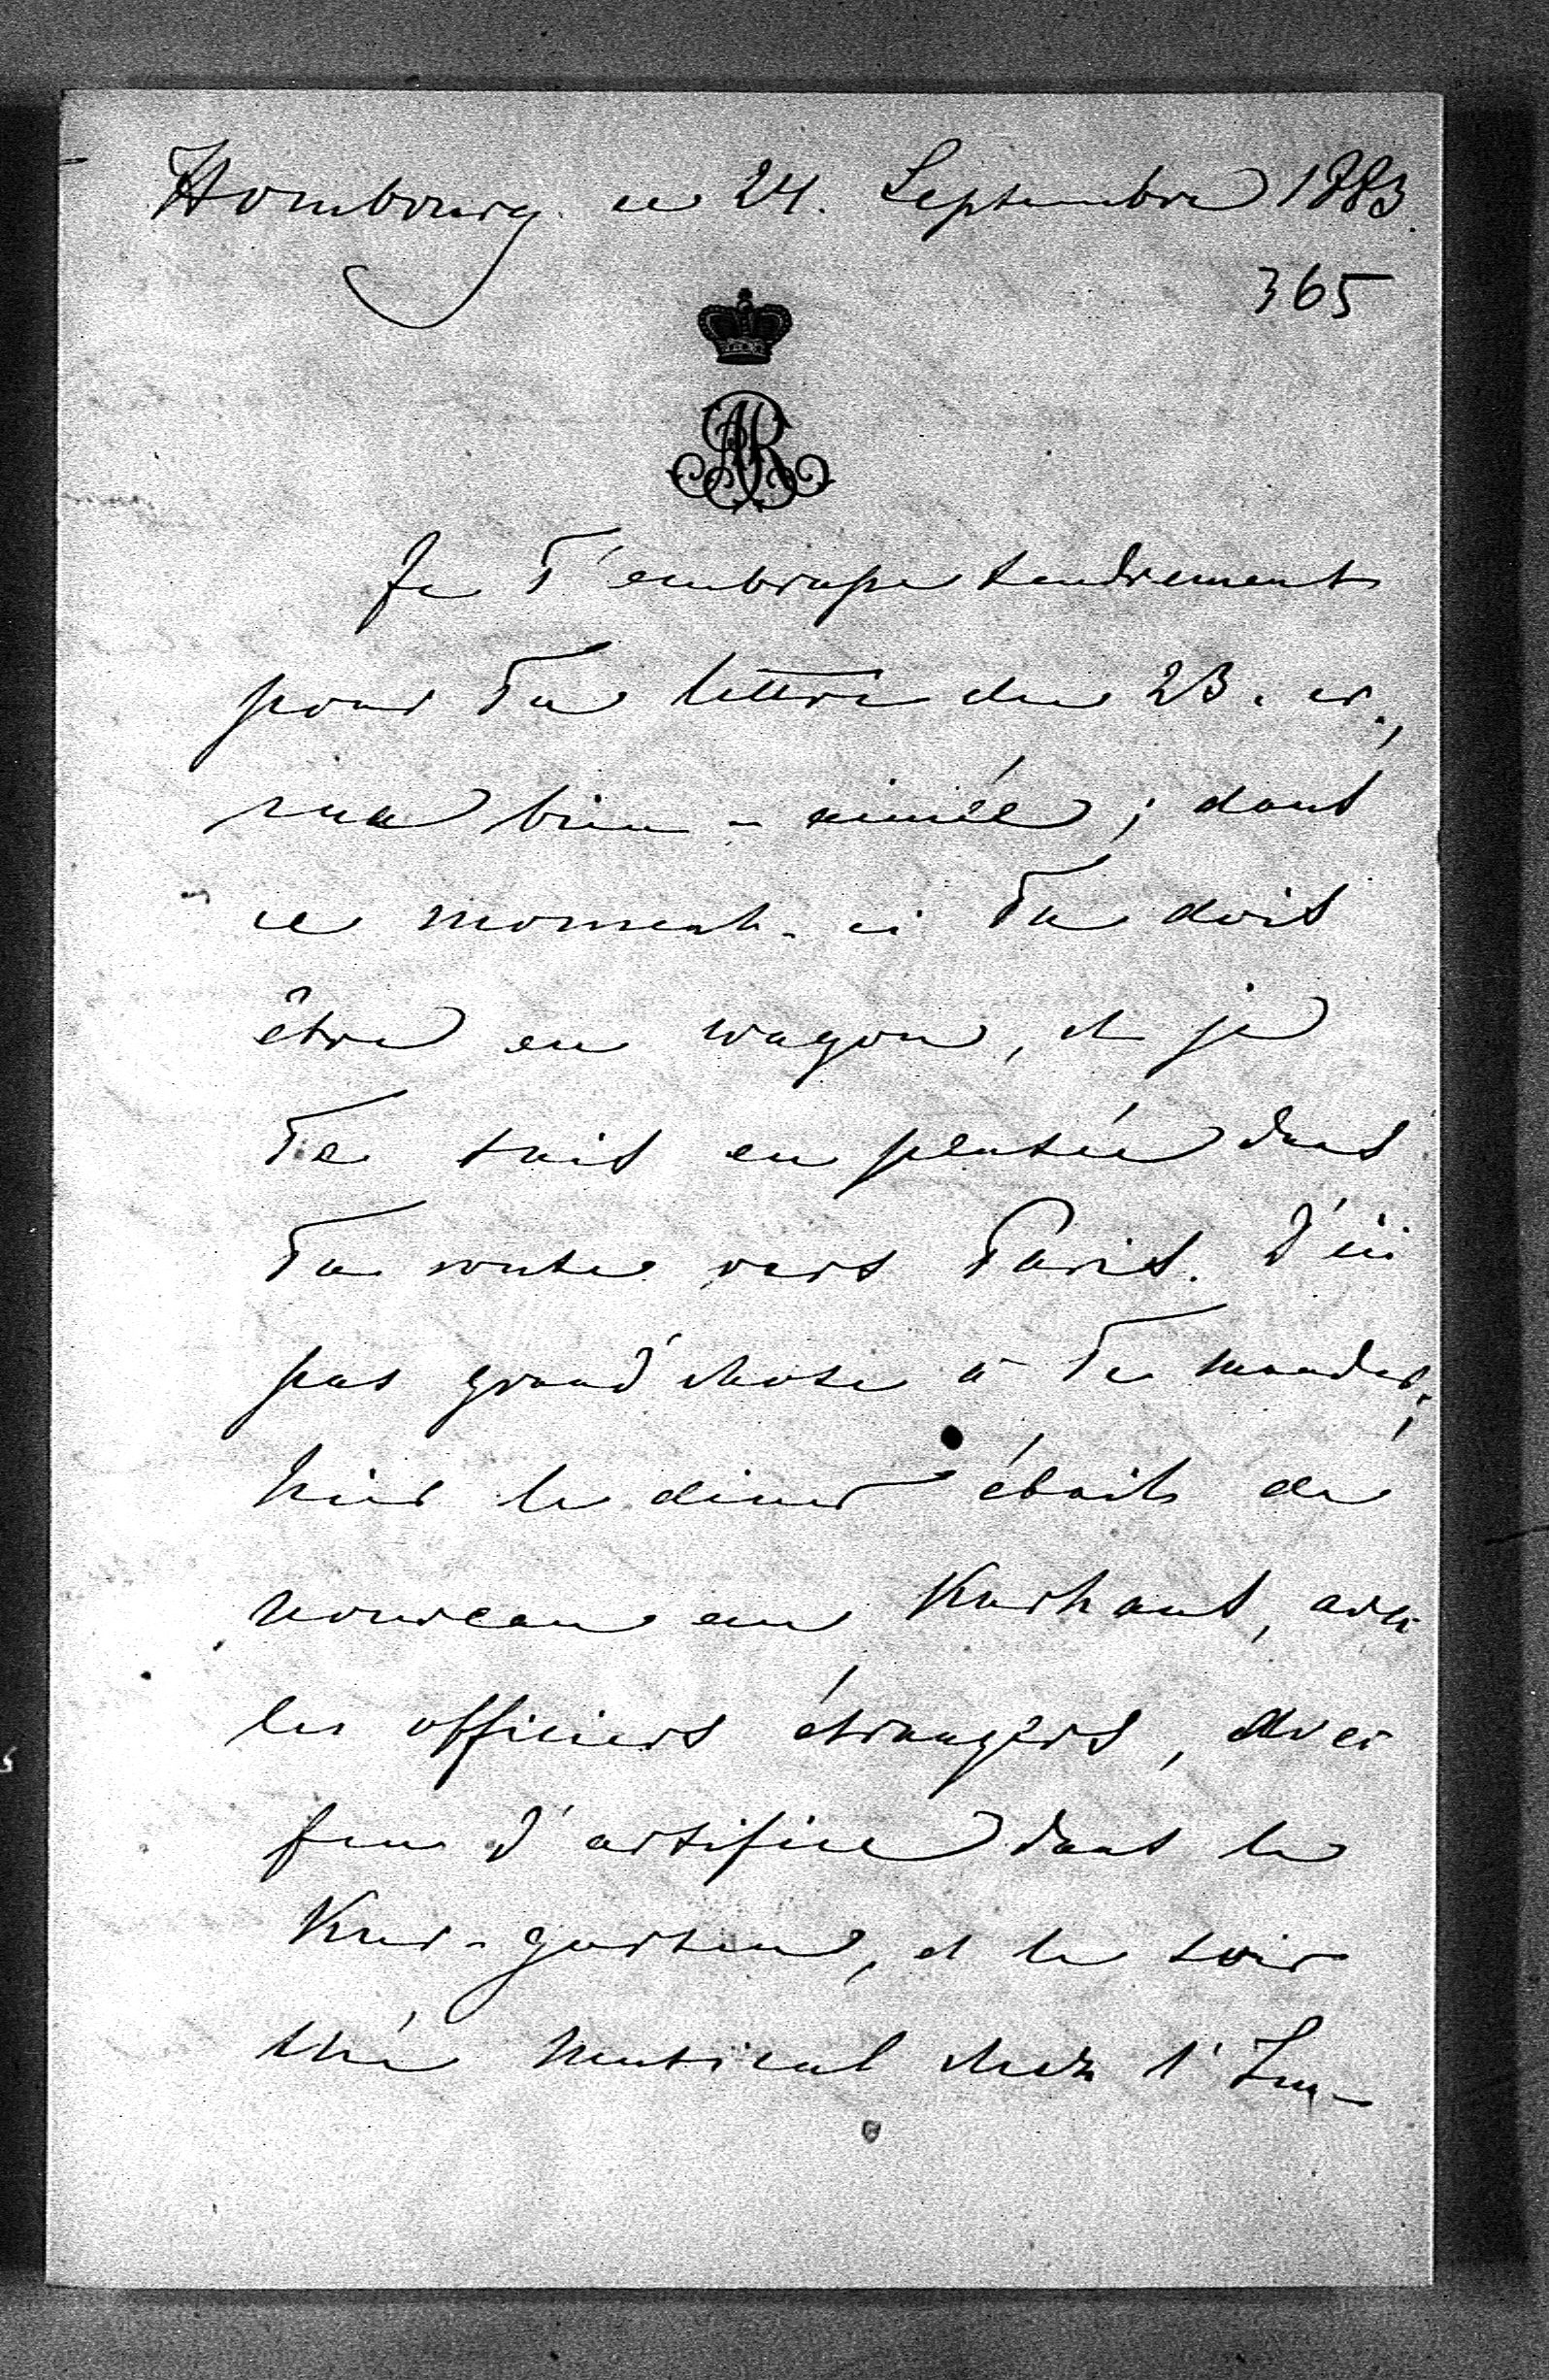 Hombourg ce 24. Septembre 1883.
365
AR
Je T'embrasse tendrement
pour Ta lettre du 23. cr.,
ma bien-aimée; dans
ce moment-ci Tu dois
être en wagon, et je
Te suis en pensée dans
Ta route vers Paris. D'ici
pas grand'chose à Te mander;
hier le diner était de
nouveau au Kurhaus, avec
les officiers étrangers, avec
feu d'artifice dans le
Kur-garten, et le soir
thé musical chez l'Im-